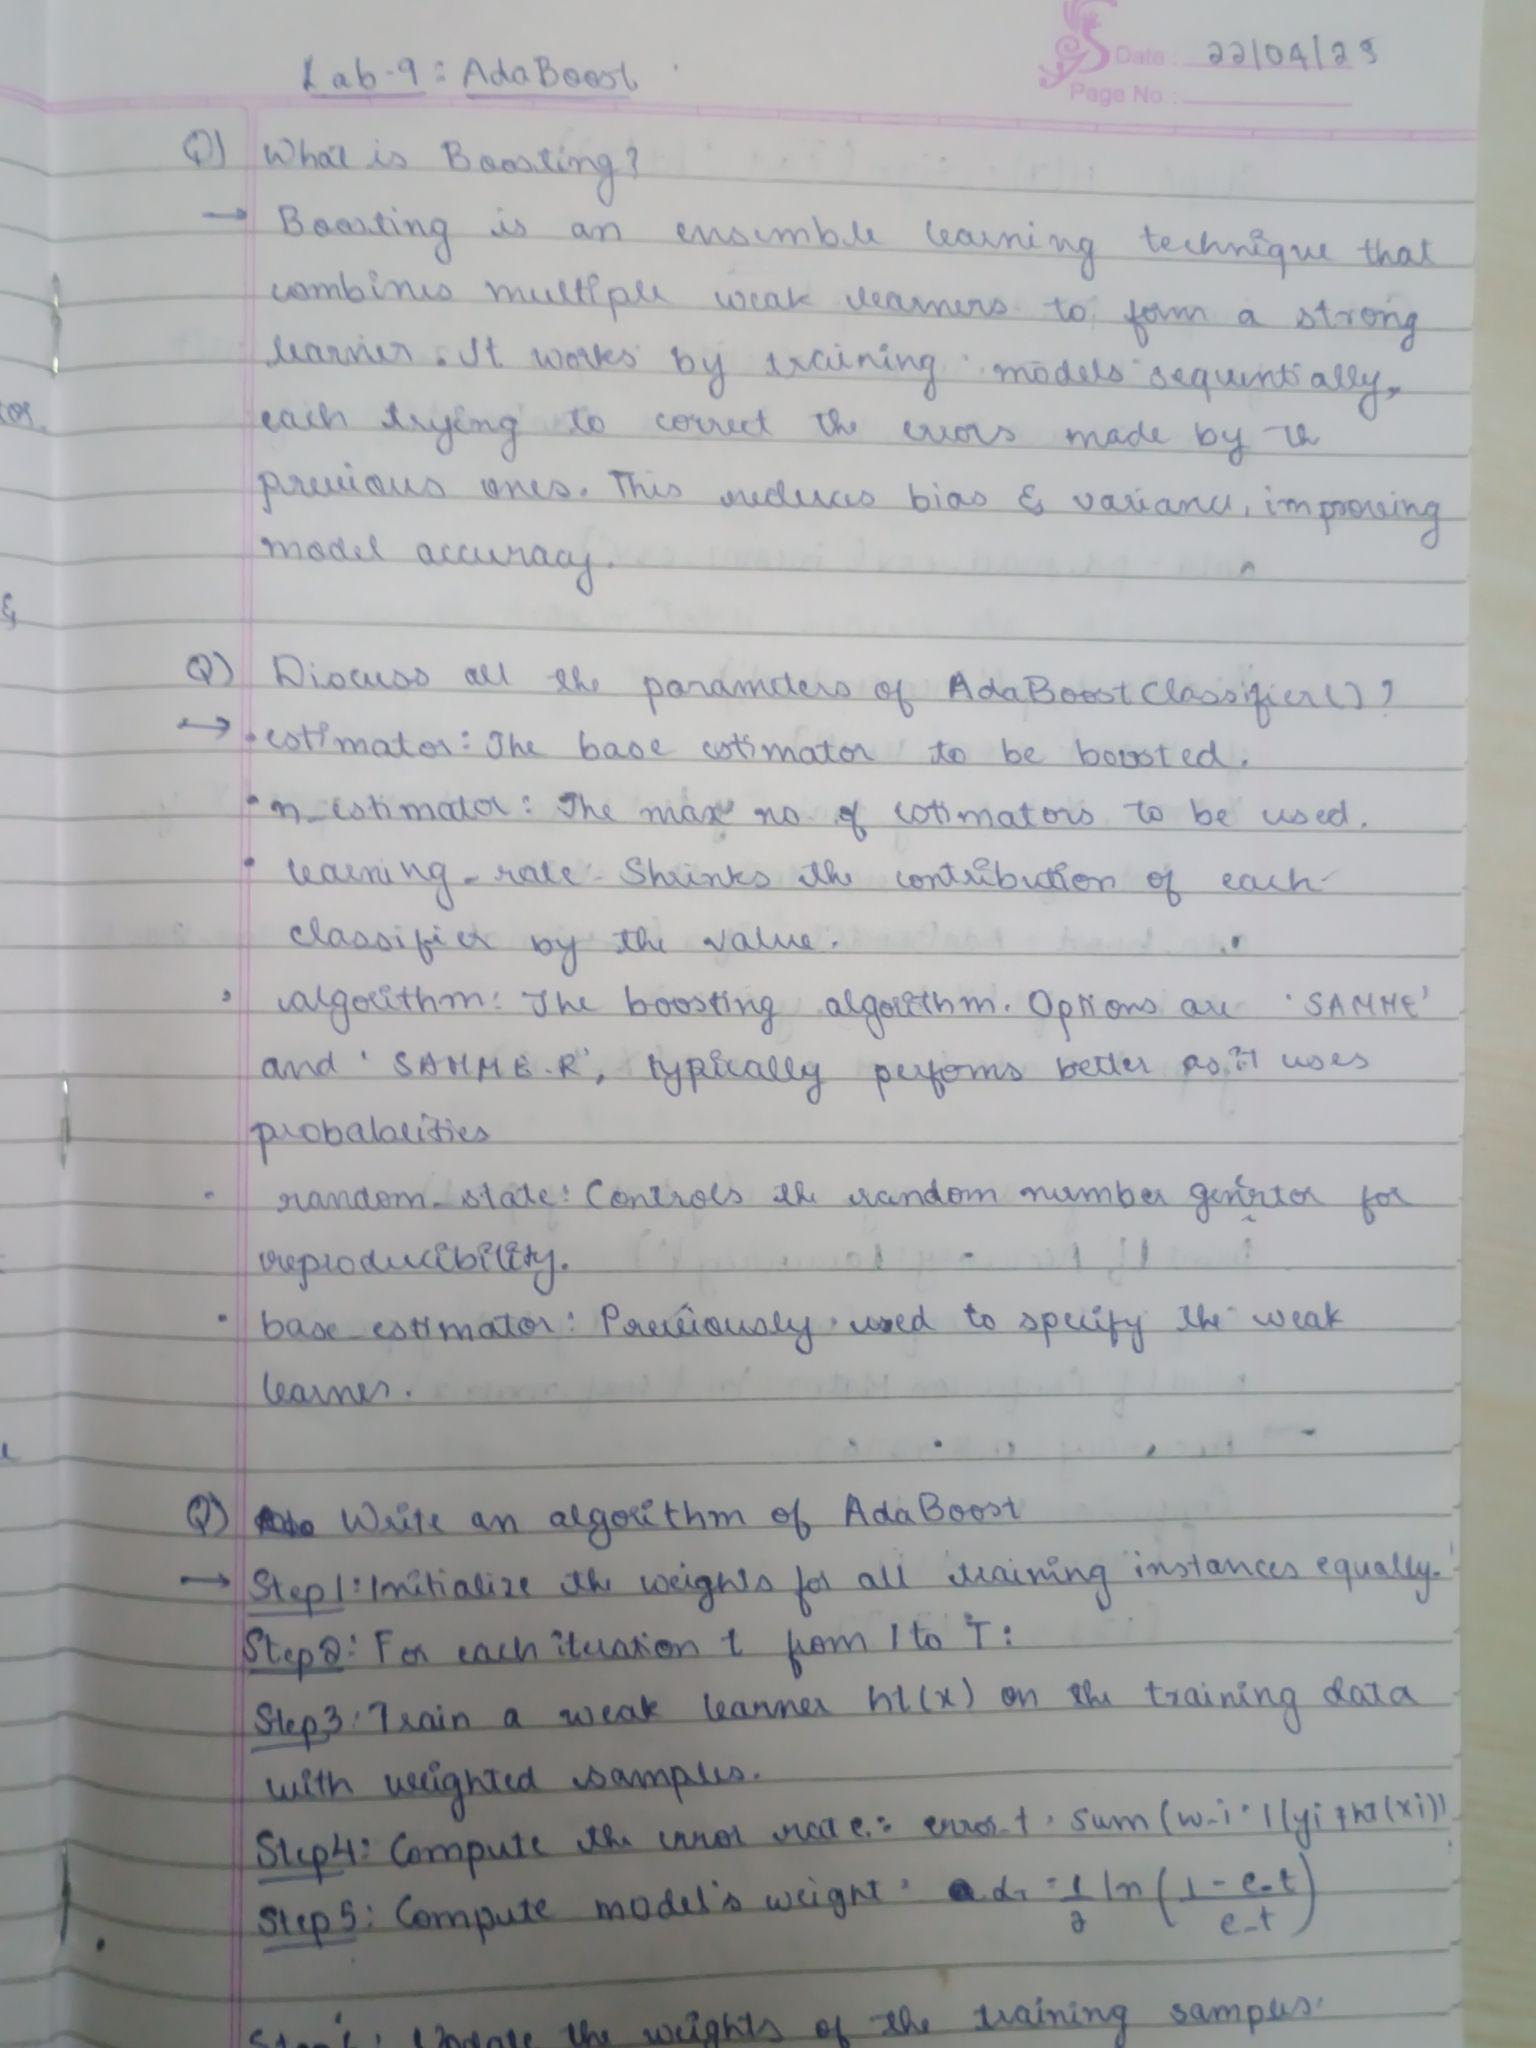 Lab-9: AdaBoost
Date: 22/04/25
Page No.:
Q) What is Boosting?
→ Boosting is an ensemble learning technique that
combines multiple weak learners to form a strong
learner. It works by training models sequentially,
each trying to correct the errors made by the
previous ones. This reduces bias & variance, improving
model accuracy.
Q) Discuss all the parameters of AdaBoostClassifier()?
→ • estimator: The base estimator to be boosted.
• n_estimator: The max no of estimators to be used.
• learning_rate - Shrinks the contribution of each
classifier by the value.
• algorithm: The boosting algorithm. Options are 'SAMME'
and 'SAMME.R', typically performs better as it uses
probabalities
• random_state: Controls the random number genrtor for
reproducibility.
• base_estimator: Previously used to specify the weak
learner.
Q) Write an algorithm of AdaBoost
→ Step1: Initialize the weights for all training instances equally.
Step2: For each iteration t from 1 to T:
Step3: Train a weak learner ht(x) on the training data
with weighted samples.
Step4: Compute the error rate: error_t = sum(w_i * 1(yi ≠ ht(xi))
Step5: Compute model's weight: αt = 1/2 ln(1-e_t/e_t)
Step6: Update the weights of the training samples.
tor
&